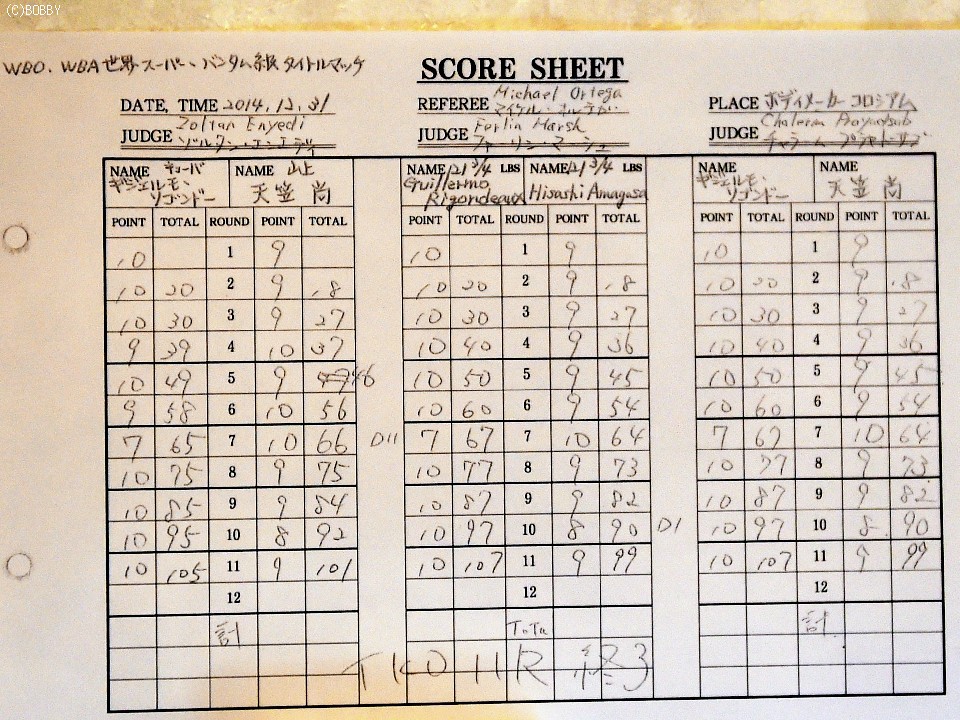 (C)BOBBY
WBO. WBA世界スーパー・バンタム級タイトルマッチ
SCORE SHEET
DATE, TIME 2014,12,31 REFEREE Michael Ortega PLACE ボディメーカーコロシアム
JUDGE Zoltan Enyedi JUDGE Ferlin Marsh JUDGE
ゾルタン・エンエディ ファーリン・マーシュ
NAME キューバ NAME 山上 NAME 121 3/4 LBS NAME 121 3/4 LBS NAME NAME
ギジェルモ・リゴンドー 天笠 尚 Guillermo Rigondeaux Hisashi Amagasa ギジェルモ・リゴンドー 天笠 尚
POINT TOTAL ROUND POINT TOTAL POINT TOTAL ROUND POINT TOTAL POINT TOTAL ROUND POINT TOTAL
10 1 9 10 1 9 10 1 9
10 20 2 9 18 10 20 2 9 18 10 20 2 9 18
10 30 3 9 27 10 30 3 9 27 10 30 3 9 27
9 39 4 10 37 10 40 4 9 36 10 40 4 9 36
10 49 5 9 46 10 50 5 9 45 10 50 5 9 45
9 58 6 10 56 10 60 6 9 54 10 60 6 9 54
7 65 7 10 66 D11 7 67 7 10 64 7 67 7 10 64
10 75 8 9 75 10 77 8 9 73 10 77 8 9 73
10 85 9 9 84 10 87 9 9 82 10 87 9 9 82
10 95 10 8 92 10 97 10 8 90 D1 10 97 10 8 90
10 105 11 9 101 10 107 11 9 99 10 107 11 9 99
12 12 12
計 計
TKO 11R 終了